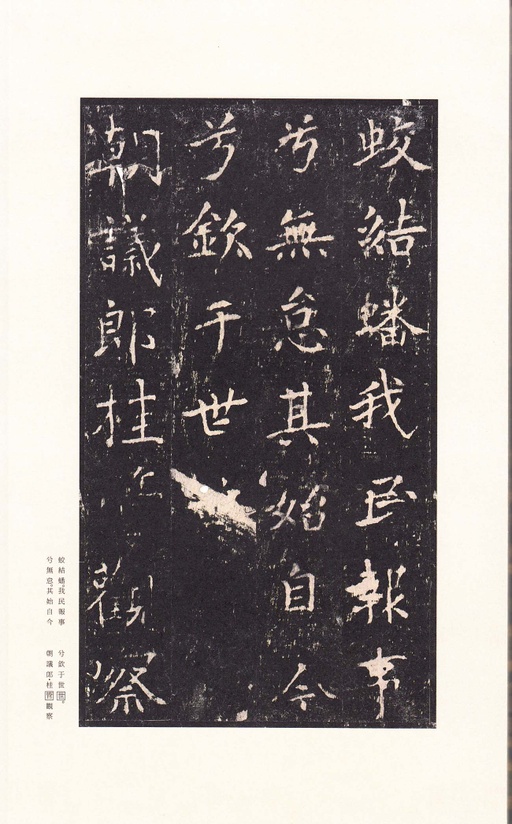 蛟結蟠我民報事
兮無怠其始自今
兮欽于世
朝議郎桂 觀察
蛟結蟠。我民報事
兮無怠。其始自今
兮欽于世世。
朝議郎・桂管觀察